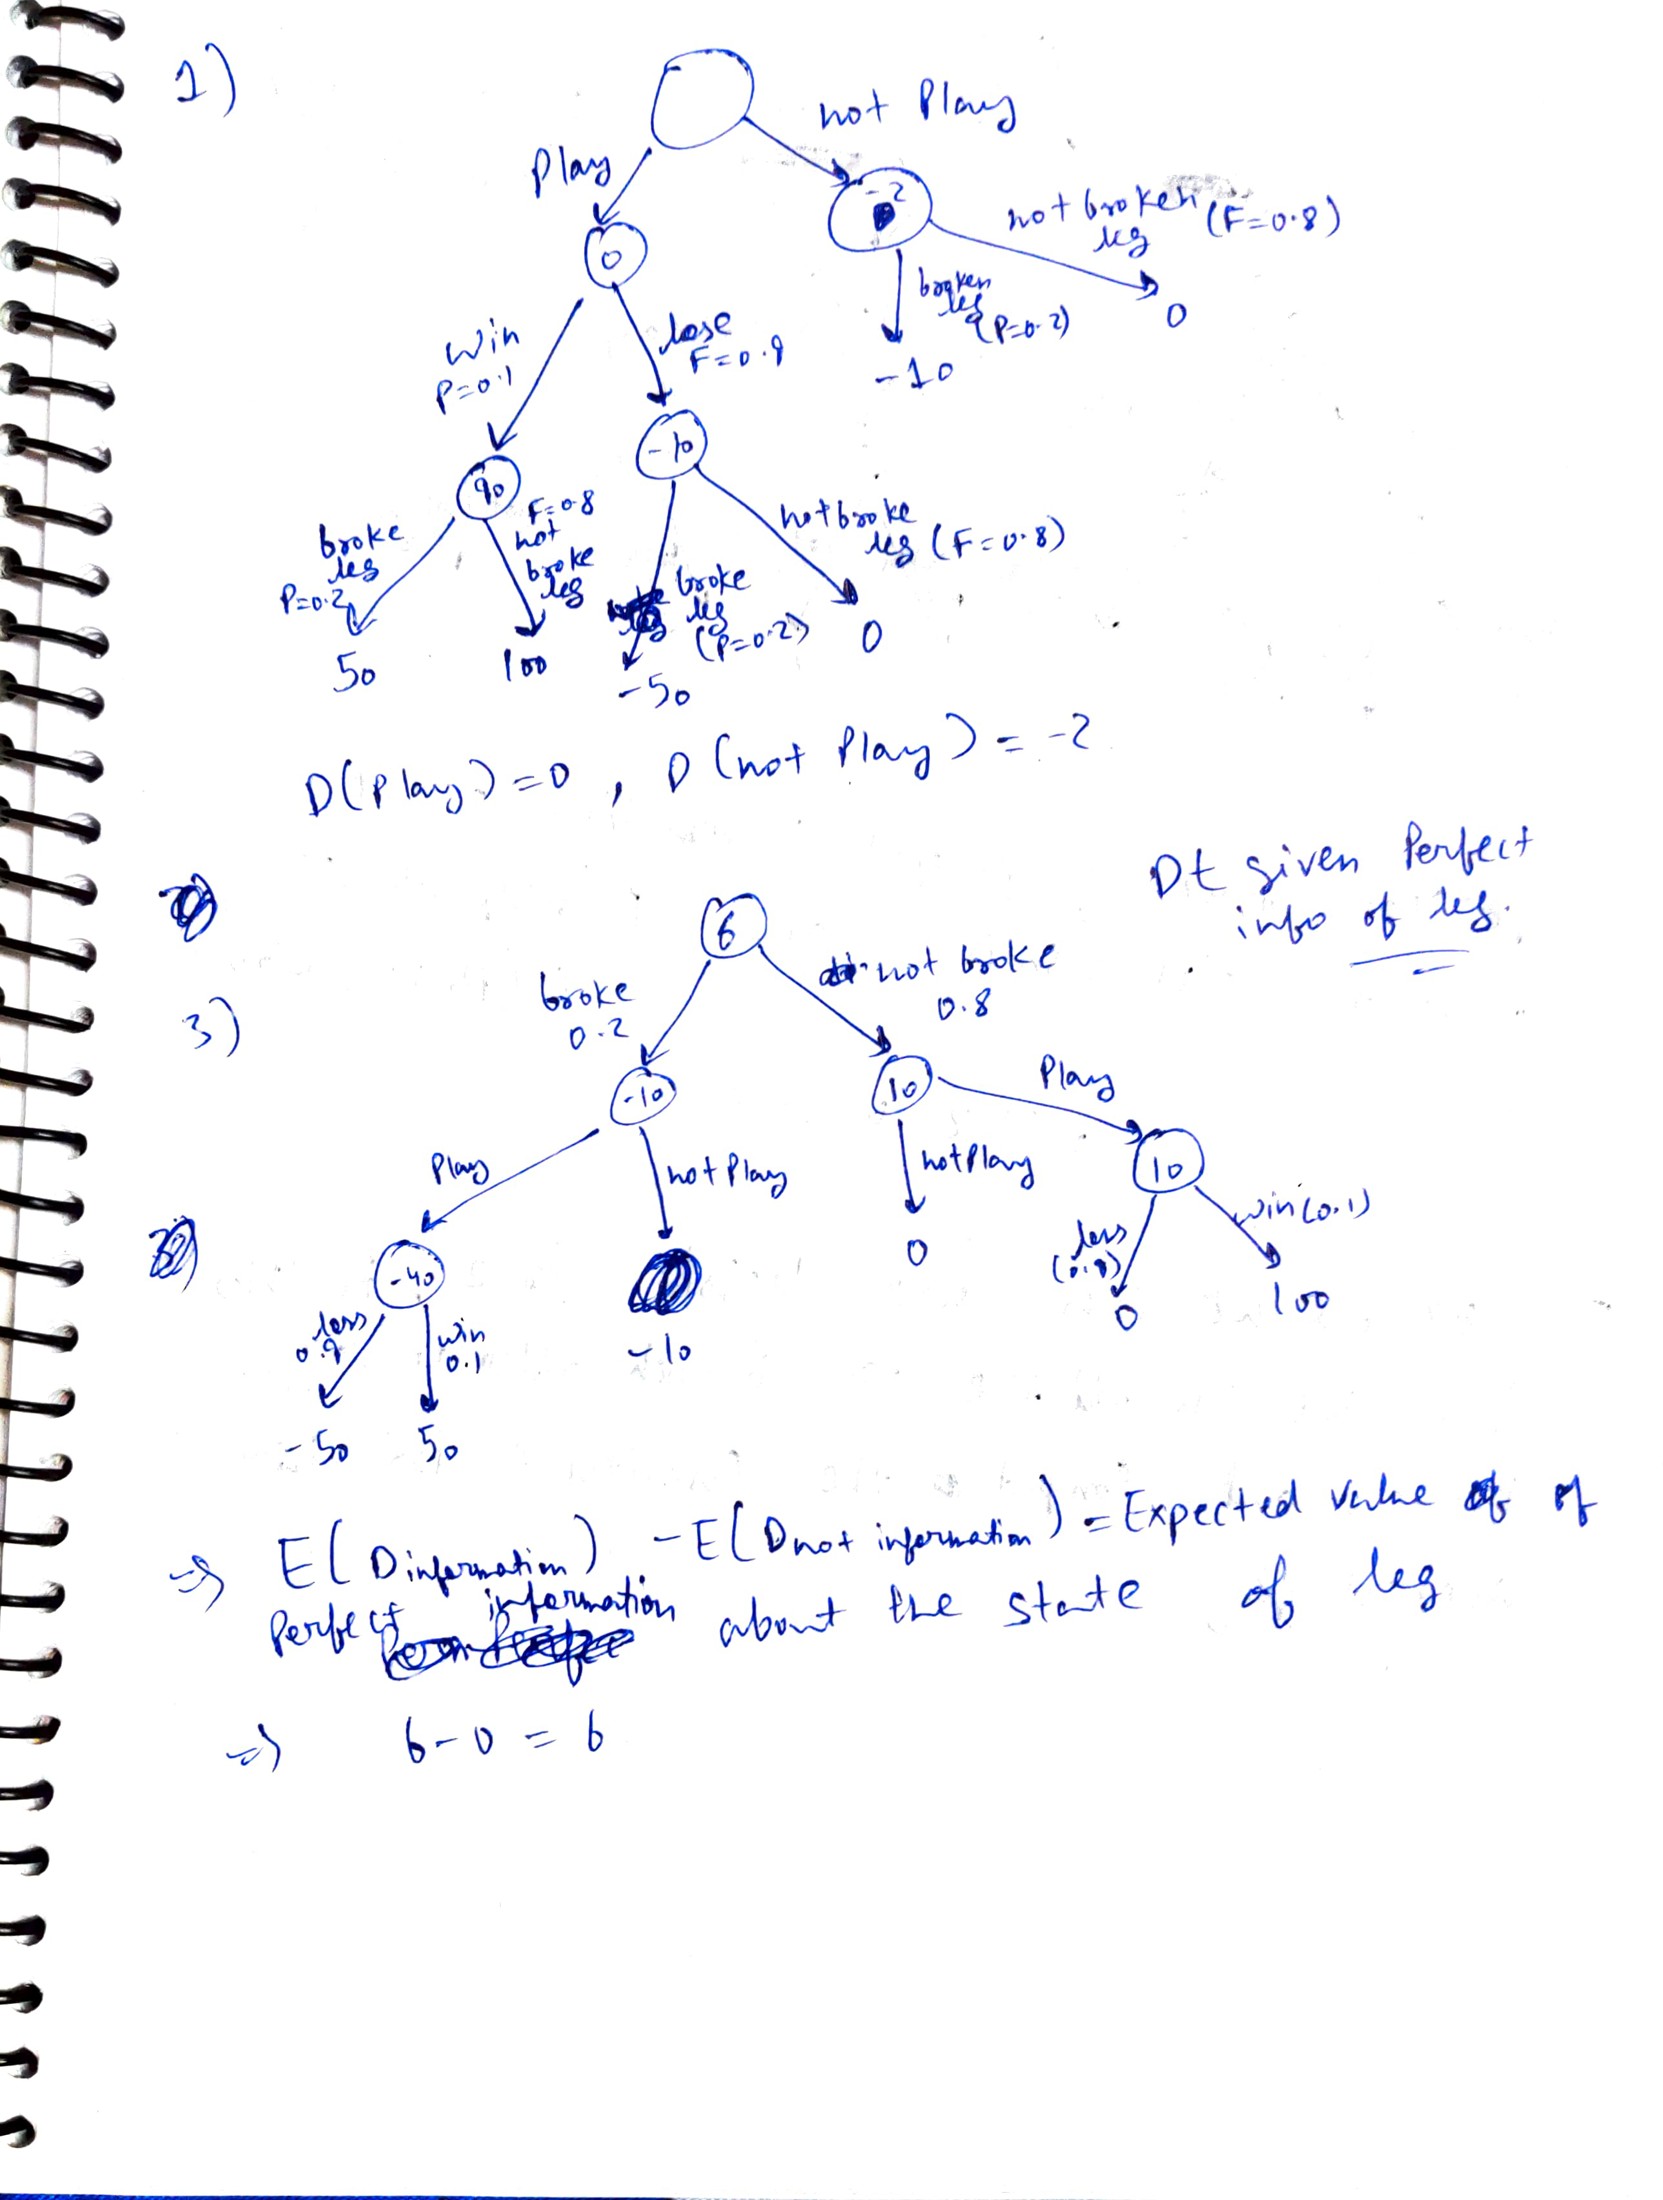 1)
not Play
Play
-2
not broken (F=0.8)
leg
0
broken
leg
(P=0.2)
0
-10
Win
P=0.1
lose
F=0.9
-10
90
F=0.8
not
broke
leg
broke
leg
P=0.2
not broke
leg (F=0.8)
broke
leg
(P=0.2)
50
100
-50
0
D(Play)=0 , D(not Play) = -2
Dt given Perfect
info of leg.
6
broke
0.2
not broke
0.8
3)
-10
10
Play
Play
not Play
not Play
10
win(0.1)
0
0
100
-40
-10
0.9
win
0.1
-50
50
=> E(D information) - E(D not information) = Expected value of
Perfect information about the state of leg
=> 6-0 = 6